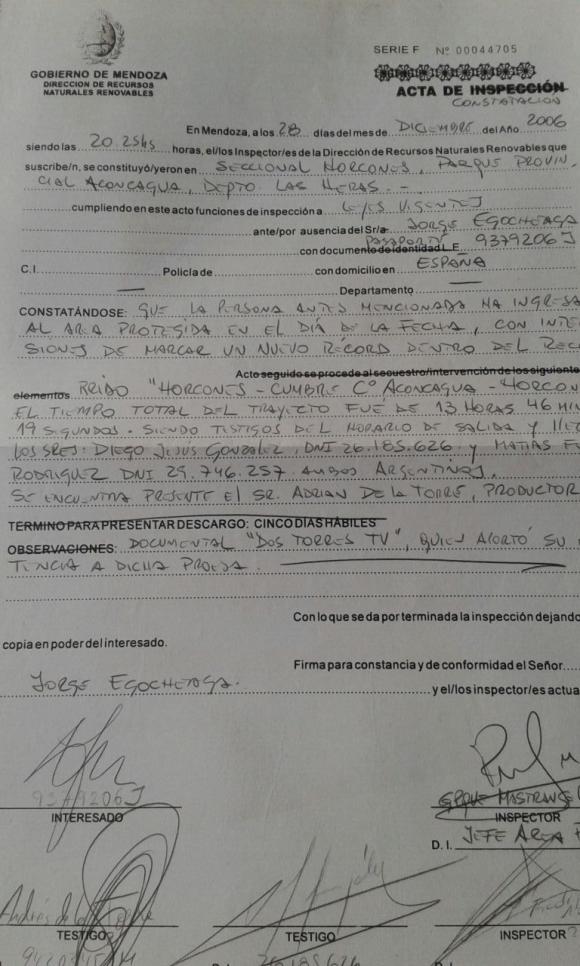 SERIE F Nº 00044705
GOBIERNO DE MENDOZA
DIRECCION DE RECURSOS
NATURALES RENOVABLES
ACTA DE INSPECCIÓN
CONSTATACION
En Mendoza, a los 28 días del mes de DICIEMBRE del Año 2006
siendo las 20.25hs horas, el/los Inspector/es de la Dirección de Recursos Naturales Renovables que
suscribe/n, se constituyó/yeron en SECCIONAL HORCONES, PARQUE PROVIN
CIAL ACONCAGUA, DEPTO. LAS HERAS. -
cumpliendo en este acto funciones de inspección a LEYES VIGENTES
ante/por ausencia del Sr/a. JORGE EGOCHEAGA
PASAPORTE
con documento de identidad L.E. 9379206J
C.I. Policía de con domicilio en ESPAÑA
Departamento
CONSTATÁNDOSE: QUE LA PERSONA ANTES MENCIONADA HA INGRESA
AL AREA PROTEGIDA EN EL DÍA DE LA FECHA, CON INTE
SIONES DE MARCAR UN NUEVO RÉCORD DENTRO DEL RECO
Acto seguido se procede al secuestro/intervención de los siguiente
elementos RRIDO "HORCONES - CUMBRE Cº ACONCAGUA - HORCON
EL TIEMPO TOTAL DEL TRAYECTO FUE DE 13 HORAS 46 MIN
19 SEGUNDOS. - SIENDO TESTIGOS DEL HORARIO DE SALIDA Y LLE
LOS SRES: DIEGO JESÚS GONZALEZ, DNI 26.185.626 y MATIAS
RODRIGUEZ DNI 29.746.257 AMBOS ARGENTINOS.
SE ENCUENTRA PRESENTE EL SR. ADRIAN DE LA TORRE, PRODUCTOR
TERMINO PARA PRESENTAR DESCARGO: CINCO DÍAS HÁBILES
OBSERVACIONES: DOCUMENTAL "DOS TORRES TV", QUIEN APORTÓ SU
TENCIA A DICHA PROEZA.
Con lo que se da por terminada la inspección dejando
copia en poder del interesado.
Firma para constancia y de conformidad el Señor
JORGE EGOCHEAGA. y el/los inspector/es actua
9379206J
INTERESADO
INSPECTOR
D. I. JEFE AREA
TESTIGO
TESTIGO
INSPECTOR